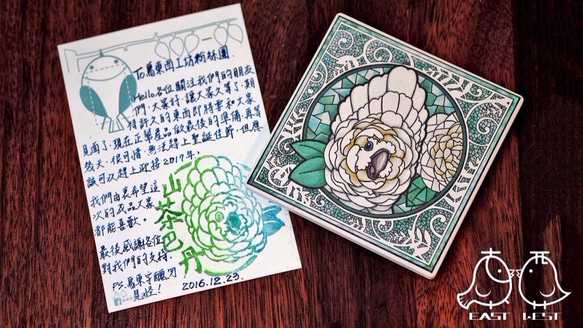 To 鳥東西工坊粉絲團。
Hello 各位關注我們的朋友
們，大家好，讓大家久等了，期
待許久的東西即將要和大家
見面了，現在正替產品做最後的準備，再等
幾天，很可惜，無法趕上聖誕佳節，但應
該可以趕上迎接2017年。
我們由衷希望這
次的成品大家
都能喜歡。
最後感謝各位
對我們的支持。
PS.鳥東字醜勿
見怪！
2016.12.23.
山茶巴丹
EAST WEST